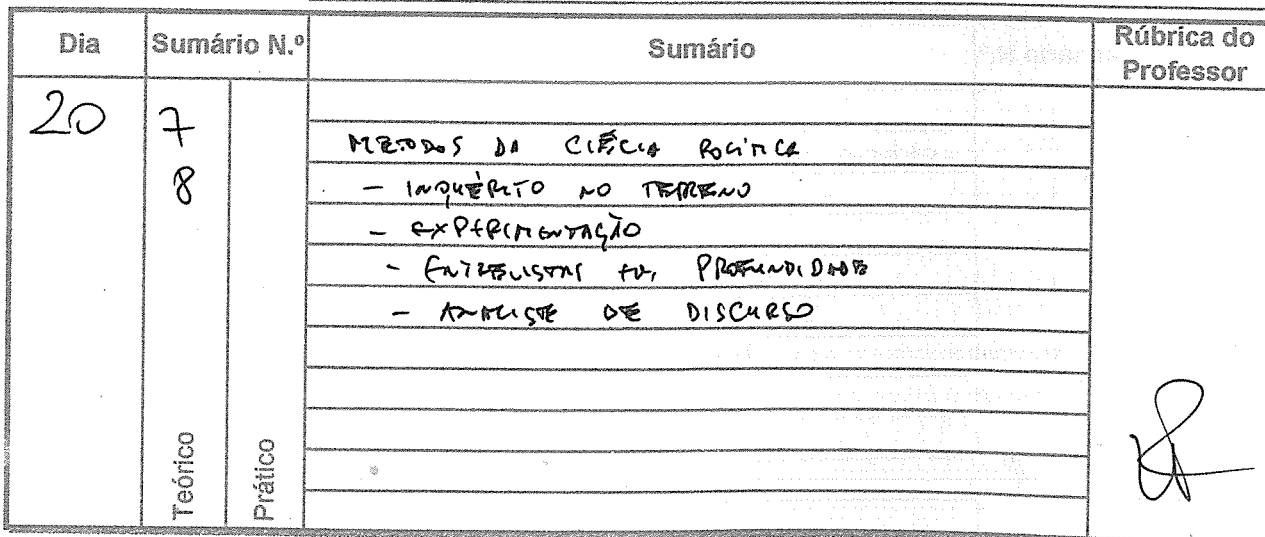 Dia
Sumário N.º
Sumário
Rúbrica do
Professor
20
7
8
MÉTODOS DA CIÊCIA POLÍTICA
- INQUÉRITO NO TERRENO
- EXPERIMENTAÇÃO
- ENTREVISTAS EM PROFUNDIDADE
- ANALISE DE DISCURSO
Teórico
Prático